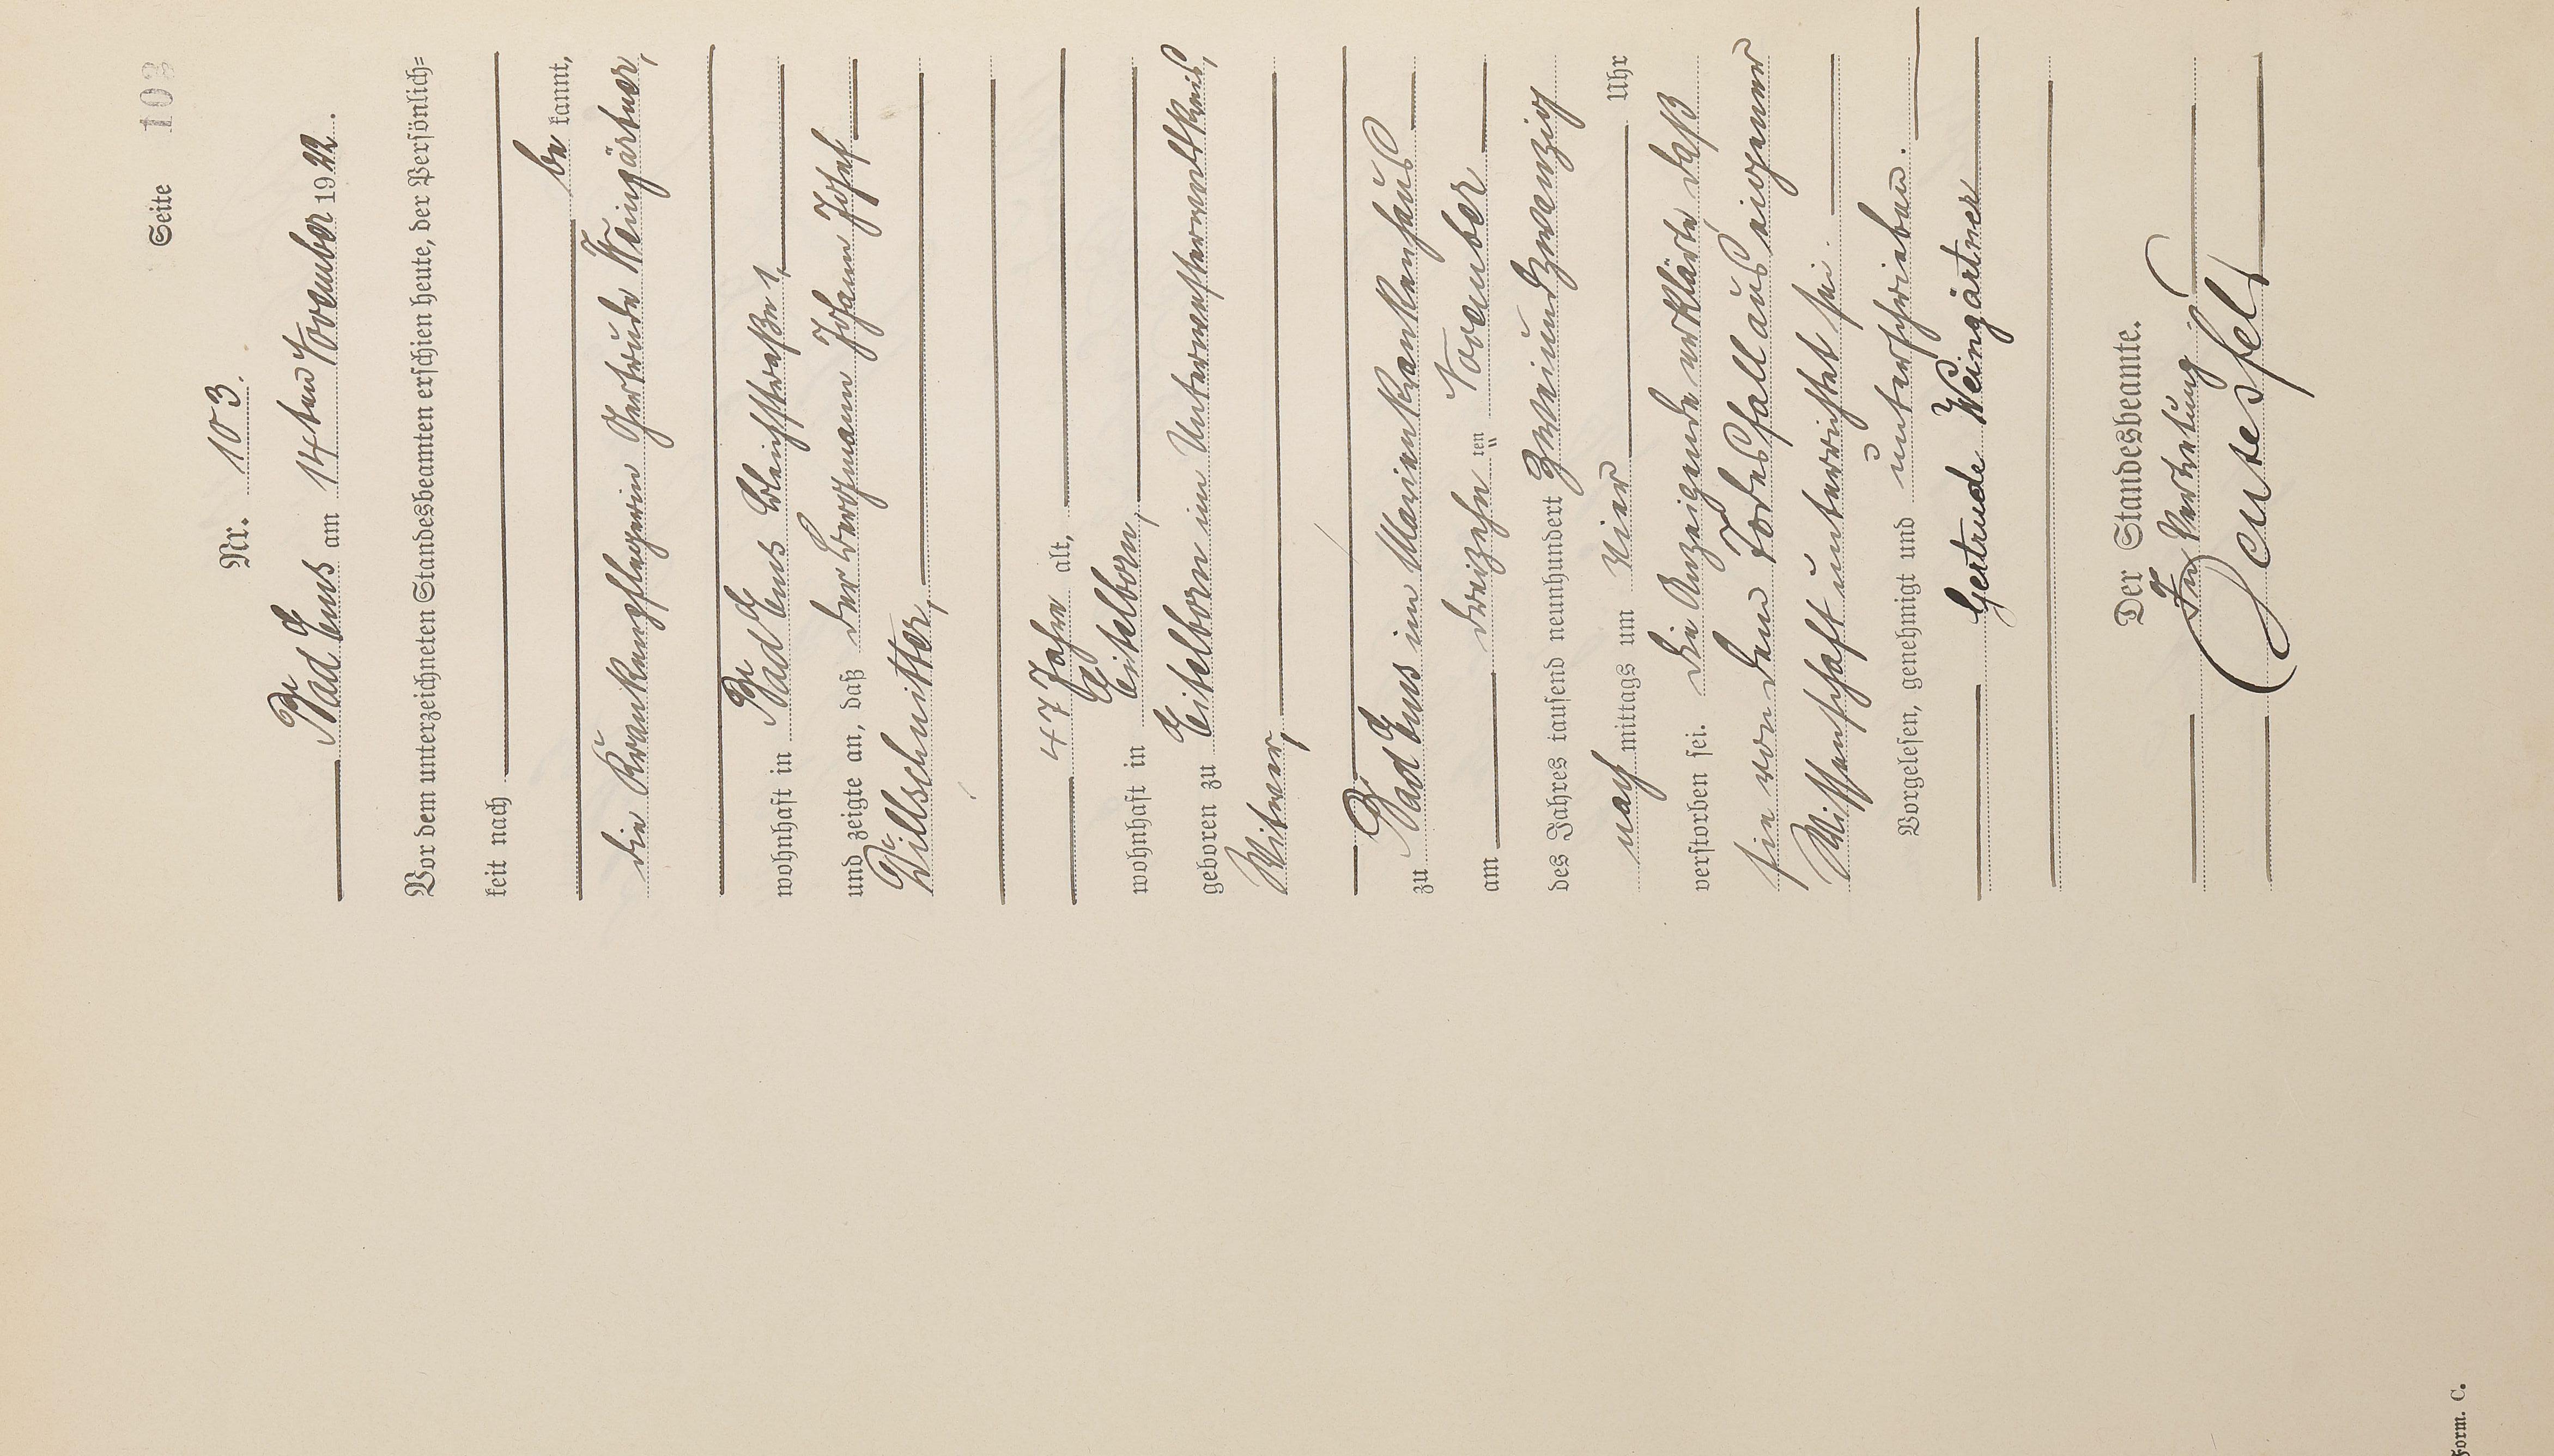 Seite 103
Nr. 103.
Bad Ems am 14ten November 1922.
Vor dem unterzeichneten Standesbeamten erschien heute, der Persönlich-
keit nach
be kannt,
die Krankenpflegerin Gertrude Weingärtner,
wohnhaft in Bad Ems Bleichstraße 1,
und zeigte an, daß der Bergmann Johann Josef
Willschnitter,
47 Jahre alt,
wohnhaft in Eitelborn,
geboren zu Eitelborn im Unterwesterwaldkreis,
Witwer,
zu Bad Ems im Marienkrankenhaus
am dreizehn ten November
des Jahres tausend neunhundert zweiundzwanzig
nach mittags um vier Uhr
verstorben sei. Die Anzeigende erklärte daß
sie von dem Todesfall aus eigener
Wissenschaft unterrichtet sei.
Vorgelesen, genehmigt und unterschrieben.
Gertrude Weingärtner
Der Standesbeamte.
In Vertretung
Form. C.